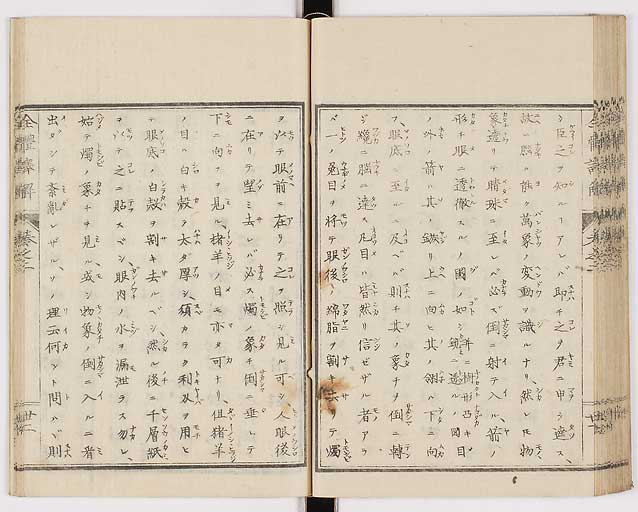 シ臣之ヲ知ルヿアレバ即チ之ヲ君ニ申シ達ス、
故ニ照シ詠ク萬象ノ変動ヲ識ルナリ然レ𪜈物
象透リテ睛珠ニ至レバ必ズ倒ニ射テ入ル箭ノ
形チ眼ニ透徹スルノ圖ノ如シ
ノ外ノ箭ハ其ノ鏃リ上ニ向ヒ其ノ翎ハ下ニ向
フ、眼底ニ至ルニ及ベバ則チ其ノ象チヲ倒ニ轉
ジ纔ニ腦ニ達ス凡目ハ皆然リ信ゼザル者アラ
バ一ノ兎目ヲ将テ眼後ノ綿脂ヲ割キ去リテ燭
ヲ以テ眼前ニ在リテ之ヲ照シ見ル可シ人眼後
ニ在リテ望ミ去レバ必ス燭ノ象チ倒ニ垂レテ
下ニ向フヲ見ル猪羊ノ目ニ亦タ可ナリ、但猪羊
ノ目ハ白キ殻ヲ太ダ厚シ、須カラク利刄ヲ用ヒ
テ眼底ノ白殻ヲ割キ去ルベシ然ル後ニ千層紙
ヲ以テ之ニ貼スベシ、眼内ノ水ヲ漏泄ラス勿レ、
始テ燭ノ象チヲ見ル或ハ物象ノ倒ニ入ルニ者
出ダシテ紊亂レザル、ソノ理云何ント問ハバ則
全體譯解
巻之二